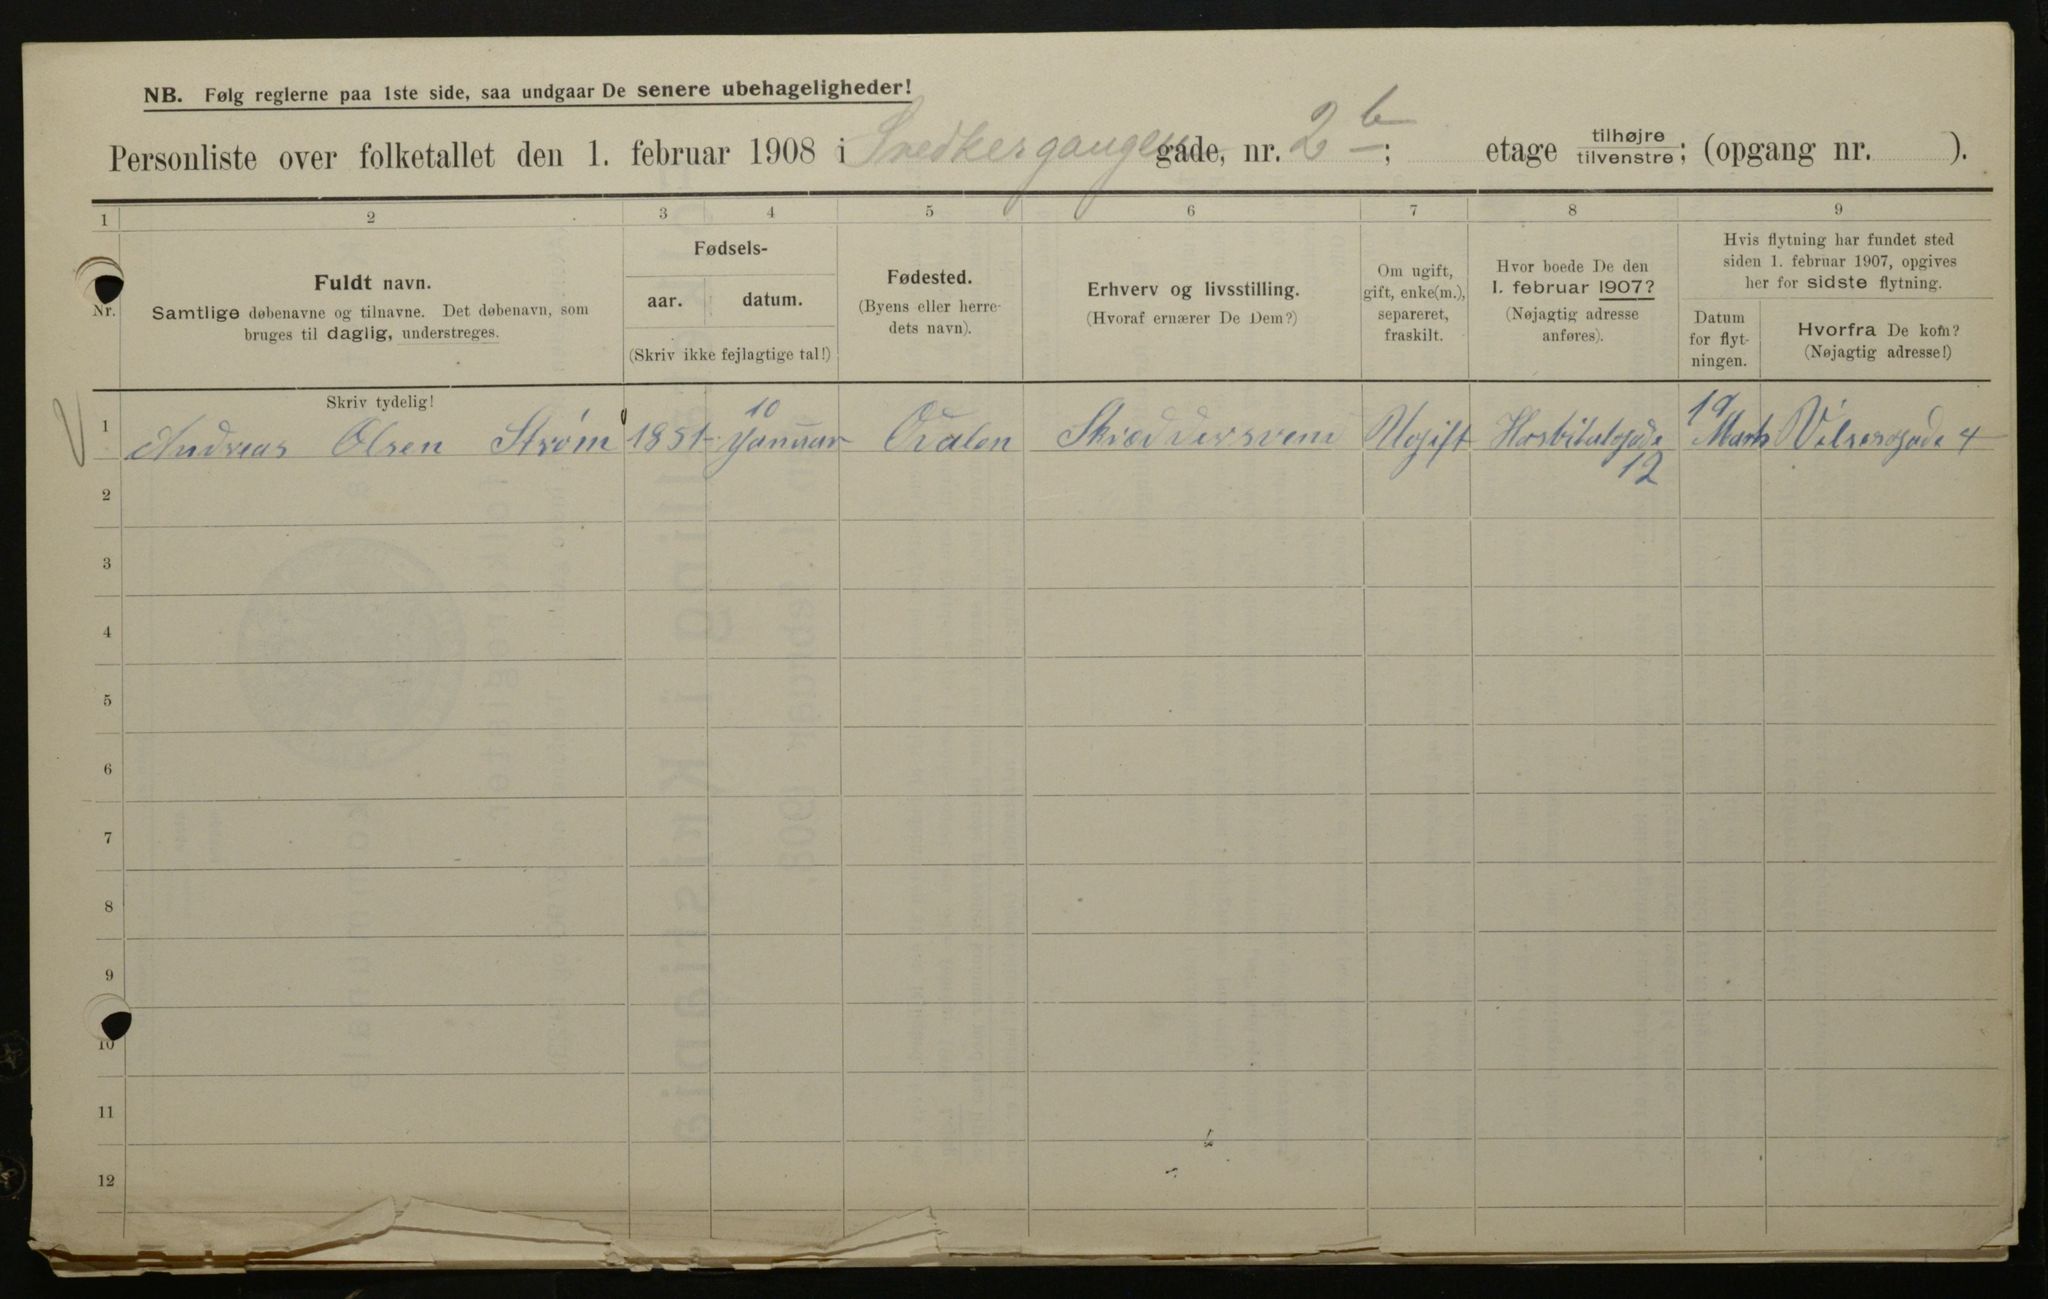 NB. Følg reglerne paa 1ste side, saa undgaar De senere ubehageligheder!
Personliste over folketallet den 1. februar 1908 i Snedkergangen gade, nr. 2 b; etage tilhøjre tilvenstre; (opgang nr. ).
1 2 3 4 5 6 7 8 9
Nr.
Fuldt navn.
Samtlige døbenavne og tilnavne. Det døbenavn, som
bruges til daglig, understreges.
Skriv tydelig!
Fødsels-
aar. datum.
(Skriv ikke fejlagtige tal!)
Fødested.
(Byens eller herre-
dets navn).
Erhverv og livsstilling.
(Hvoraf ernærer De Dem?)
Om ugift,
gift, enke(m.),
separeret,
fraskilt.
Hvor boede De den
1. februar 1907?
(Nøjagtig adresse
anføres).
Hvis flytning har fundet sted
siden 1. februar 1907, opgives
her for sidste flytning.
Datum
for flyt-
ningen.
Hvorfra De kom?
(Nøjagtig adresse!)
1 Andreas Olsen Strøm 1851 10 Januar Odalen Skræddersvend Ugift Hosbitalsgade 12 Marts 4
2
3
4
5
6
7
8
9
10
11
12